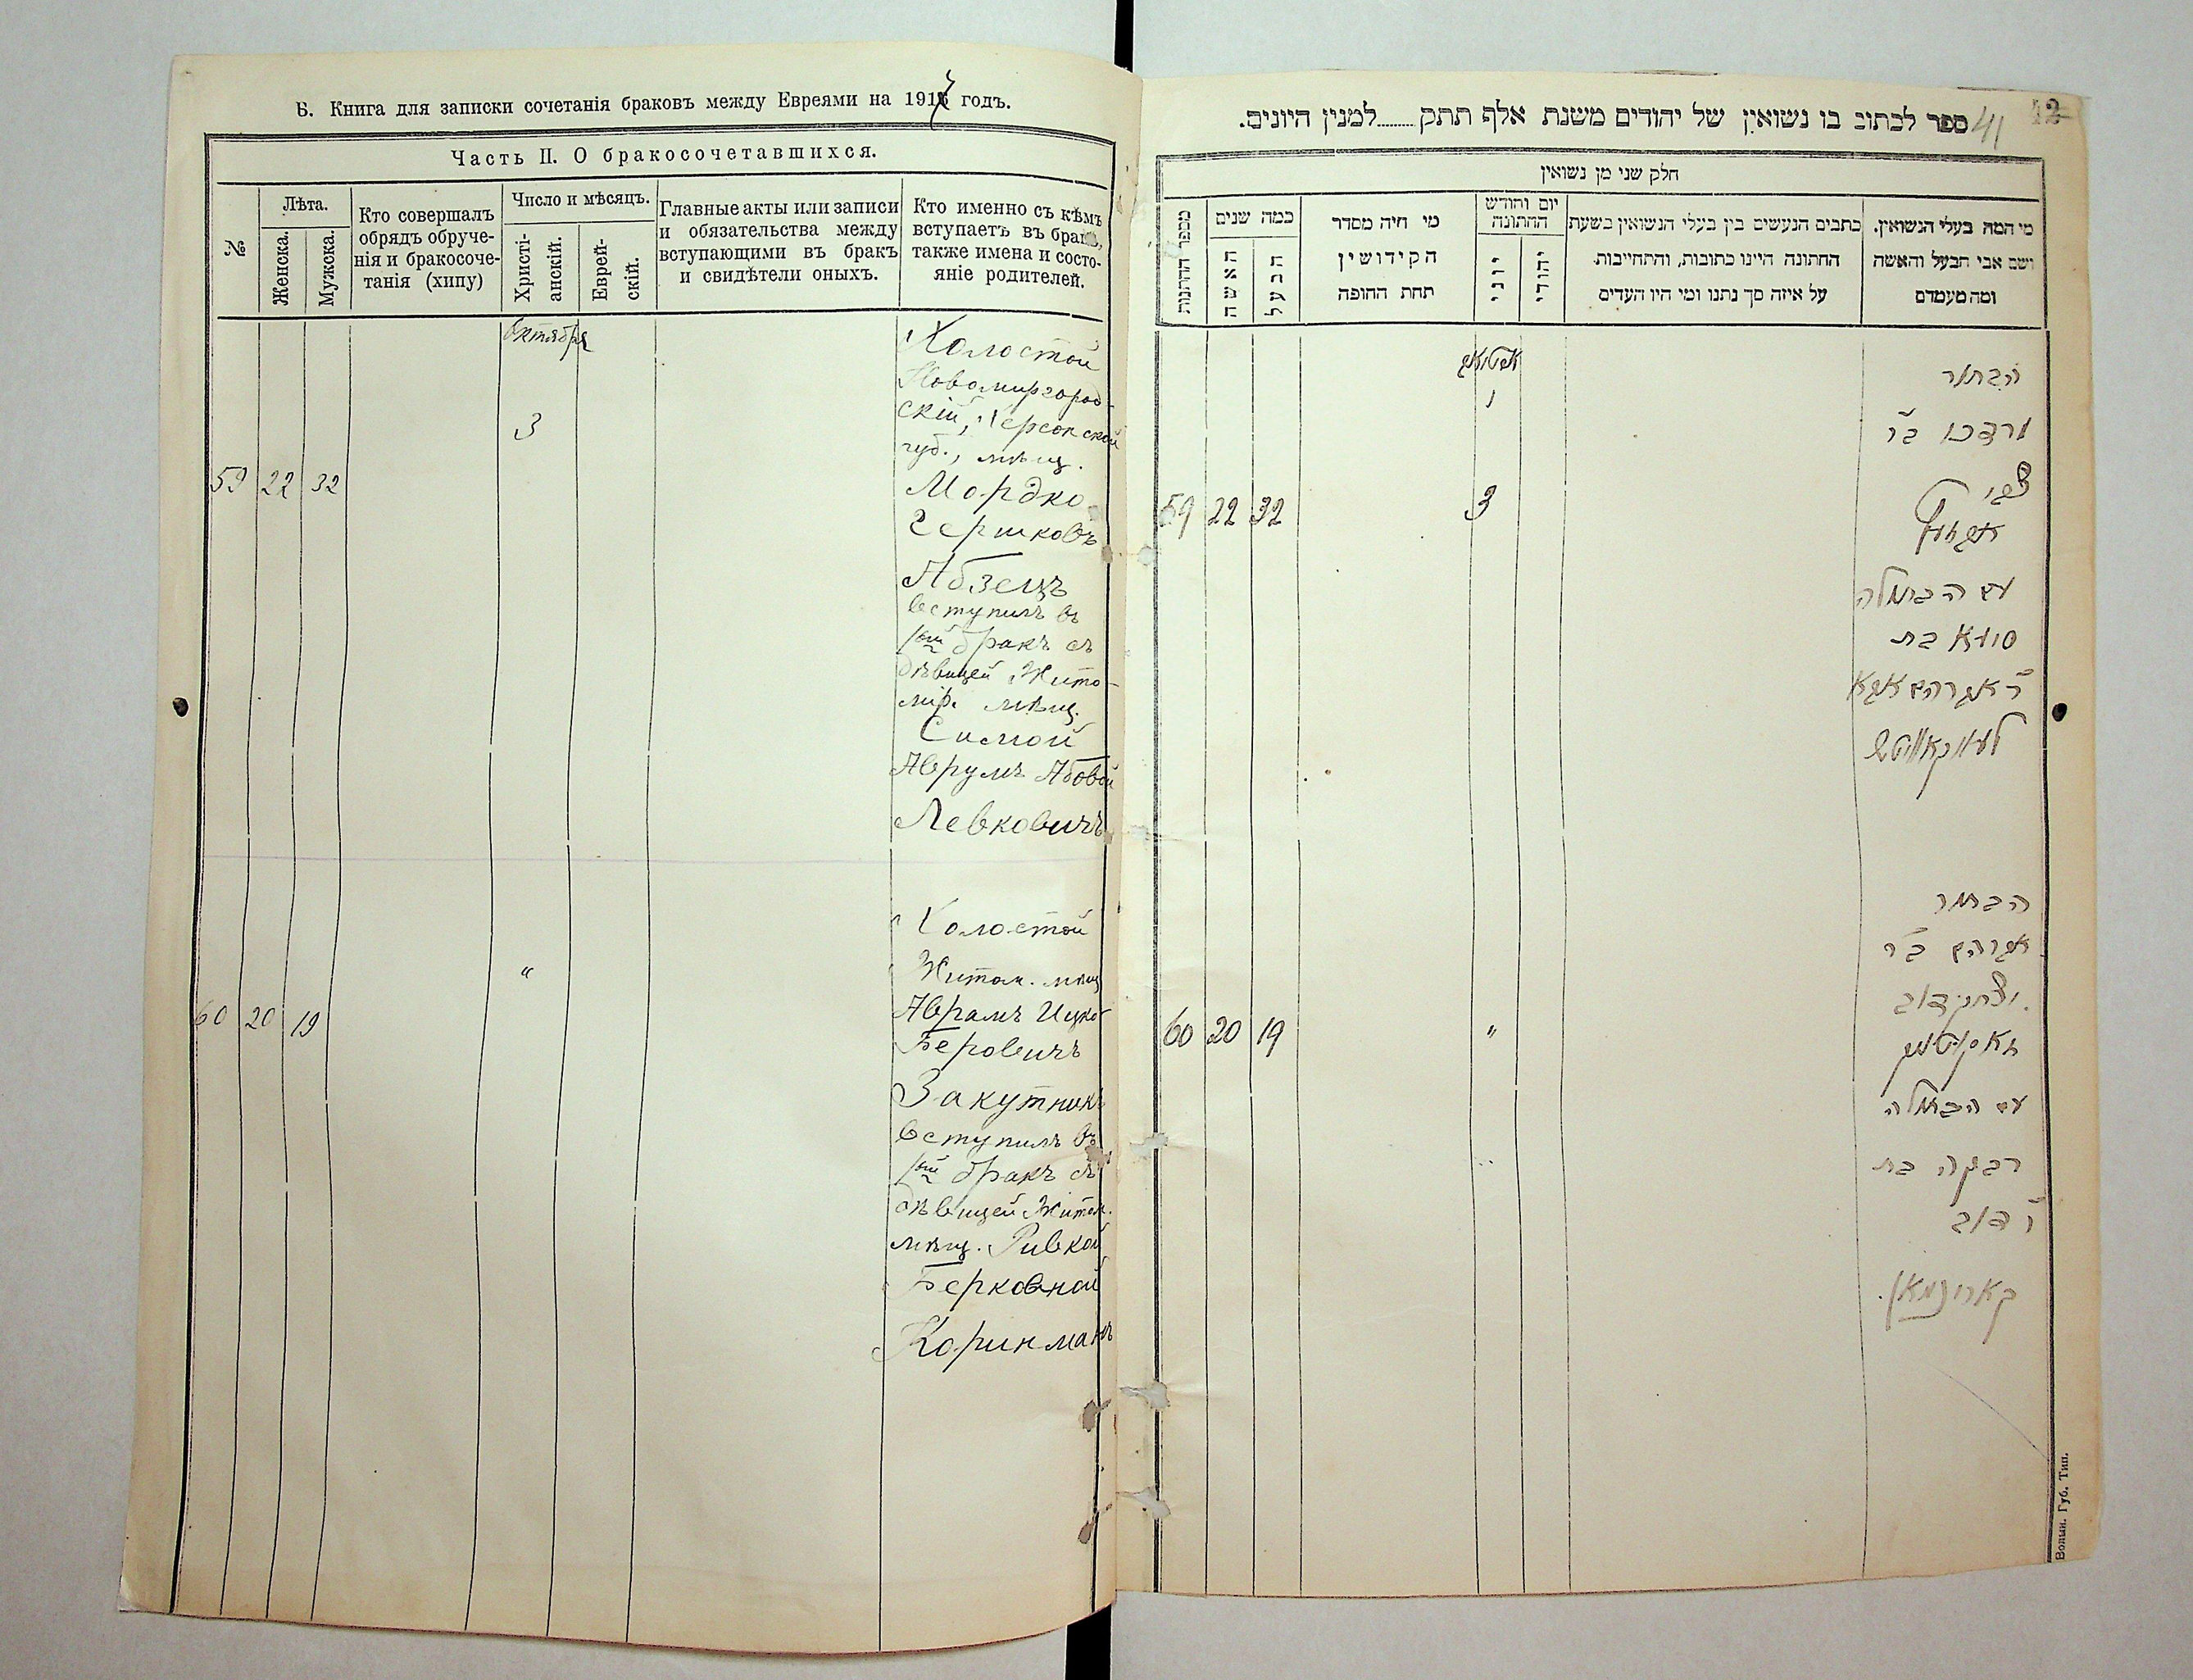 Б. Книга для записки сочетанія браковъ между Евреями на 1917 годъ.
Часть II. О бракосочетавшихся.
№
Лѣта.
Женска.
Мужска.
Кто совершалъ
обрядъ обруче-
нія и бракосоче-
танія (хипу)
Число и мѣсяцъ.
Христі-
анскій.
Еврей-
скій.
Главные акты или записи
и обязательства между
вступающими въ бракъ
и свидѣтели оныхъ.
Кто именно съ кѣмъ
вступаетъ въ бракъ,
также имена и состо-
яніе родителей.
Октября
3
59 22 32
Холостой
Новомиргород-
скій, Херсонской
губ., мѣщ.
Мордко
Гершковъ
Абзецъ
вступилъ въ
1ый бракъ съ
дѣвицей Жито-
мір. мѣщ.
Симой
Аврумъ Абовой
Левковичъ
60 20 19
"
Холостой
Житом. мѣщ
Аврамъ Ицко-
Беровичъ
Закутникъ
вступилъ въ
1ый бракъ съ
дѣвицей Житом.
мѣщ. Ривкой
Берковной
Коринманъ
12
41
ספר לכתוב בו נשואין של יהודים משנת אלף תתק........למנין היונים.
חלק שני מן נשואין
מספר החתונות
כמה שנים
האשה
הבעל
מי חיה מסדר
הקידושין
תחת החופה
יום וחודש
החתונה
יוני
יהודי
כתבים הנעשים בין בעלי הנשואין בשעת
החתונה היינו כתובות, והתחייבות
על איזה סך נתנו ומי היו העדים
מי המה בעלי הנשואין.
ושם אבי הבעל והאשה
ומה מעמדם
59 22 32
3
הבחור
מרדכי ב״ר
צבי
עם הבתולה
סימא בת
ר׳ אברהם אבא
לעווקאוויטש
60 20 19
"
הבחור
אברהם ב״ר
יצחק דוב
זאקוטניק
עם הבתולה
רבקה בת
ר׳ דוב
קארינמאן.
Волын. Губ. Тип.